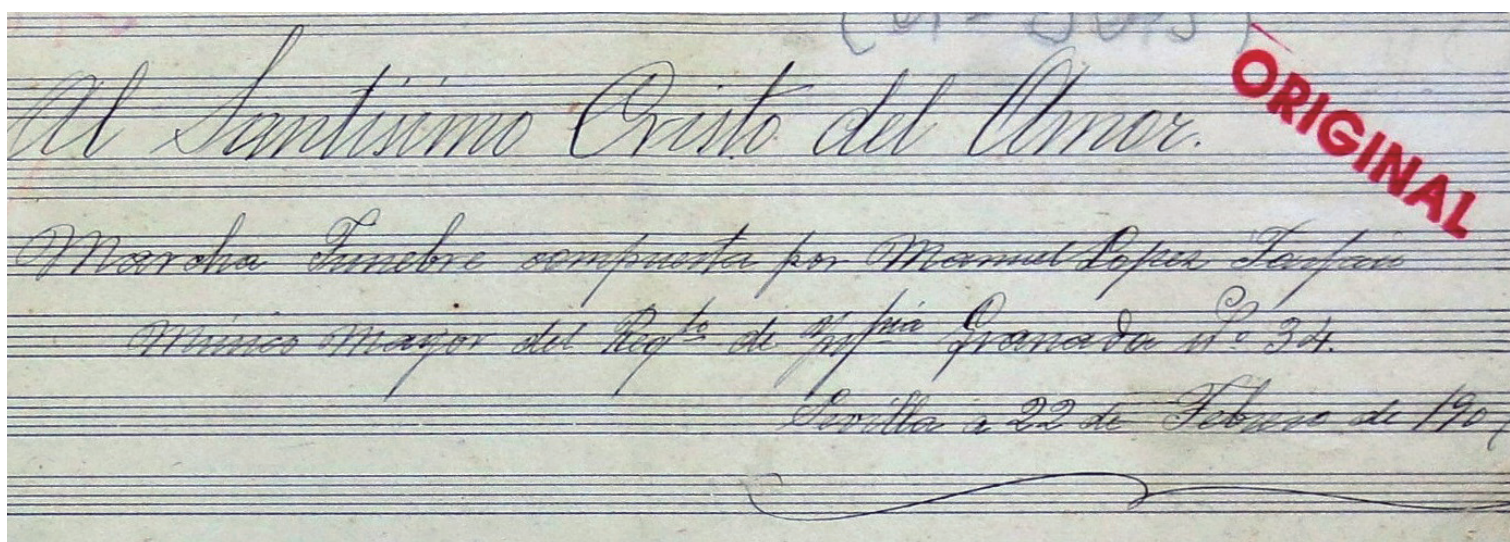 Al Santísimo Cristo del Amor.
ORIGINAL
Marcha Fúnebre compuesta por Manuel Lopez Farfán
Músico Mayor del Regto de Ynfria Granada nº 34.
Sevilla a 22 de Febrero de